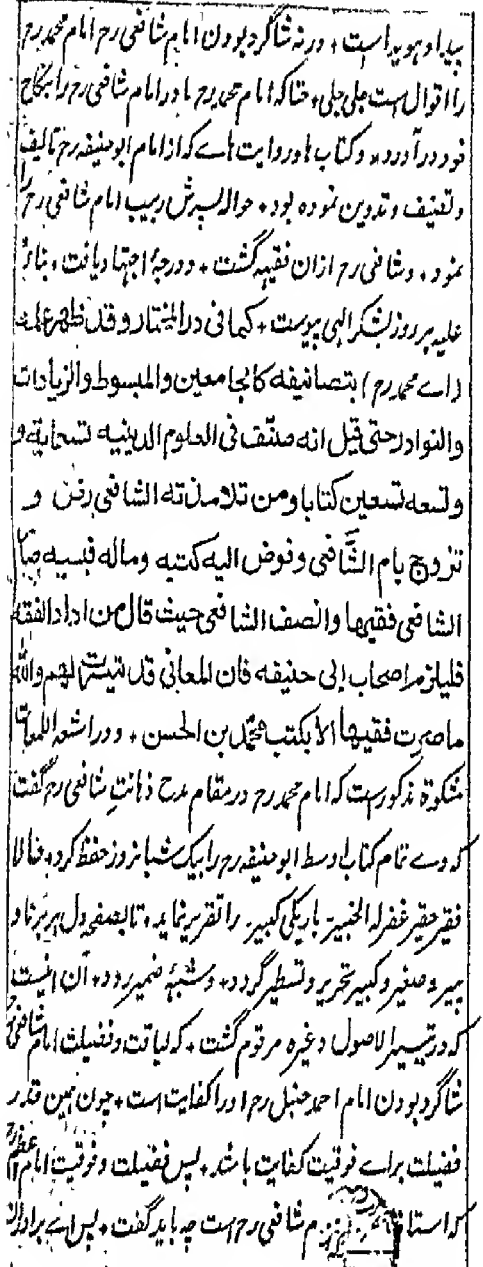 پیدا و هویدا است + ورنه شاگرد بودن امام شافعی رح امام محمد رح
را اقوال است جلی جلی + حتا که امام محمد رح مادر امام شافعی رح را بنکاح
خود در آورد + و کتاب ها و روایت هاے که از امام ابو حنیفه رح تالیف
و تصنیف و تدوین نموده بود + حواله پسرش ربیب امام شافعی رح را
نمود + و شافعی رح ازان فقیهه گشت + و درجهٔ اجتهاد یافت + بناءً
علیه هر روز بشکر الهی پیوست + کما فی در المختار وقد ظهر علمه
(اے محمد رح) بتصانیفه کالجامعین والمبسوط والزیادات
والنوادر حتی قیل انه صنّف فی العلوم الدینیه تسعمایة و
وتسعه تسعین کتابا ومن تلامذته الشافعی رض و
تزوج بام الشّافعی وفوض الیه کتبه وماله فبسببه صار
الشافعی فقیها وانصف الشافعی حیث قال من اراد الفقه
فلیلزم اصحاب ابی حنیفه فان المعانی قد تیسرت لهم والله
ماصرت فقیها الا بکتب محمّد بن الحسن + و در اشعه اللمعات
مشکوة مذکور ست که امام محمد رح در مقام مدح ذهانت شافعی رح گفت
که وے تمام کتاب اوسط ابو حنیفه رح را بیک شبانروز حفظ کرد + فالا
فقیر حقیر غفر له الخبیر باریکی کبیر را تقریر نماید + تا بصفحه دل هر برنا و
پیر و صغیر و کبیر تحریر و تسطیر گردد + و شبهٔ ضمیر رود + آن اینست
که در تیسیر الاصول وغیره مرقوم گشت + که لیاقت و فضیلت امام شافعی رح
شاگرد بودن امام احمد حنبل رح او را کفایت است + چون همین قدر
فضیلت براے فوقیت کفایت باشد + پس فضیلت و فوقیت امام اعظم رح
که استا شافعی رح است چه باید گفت + پس اے برادر